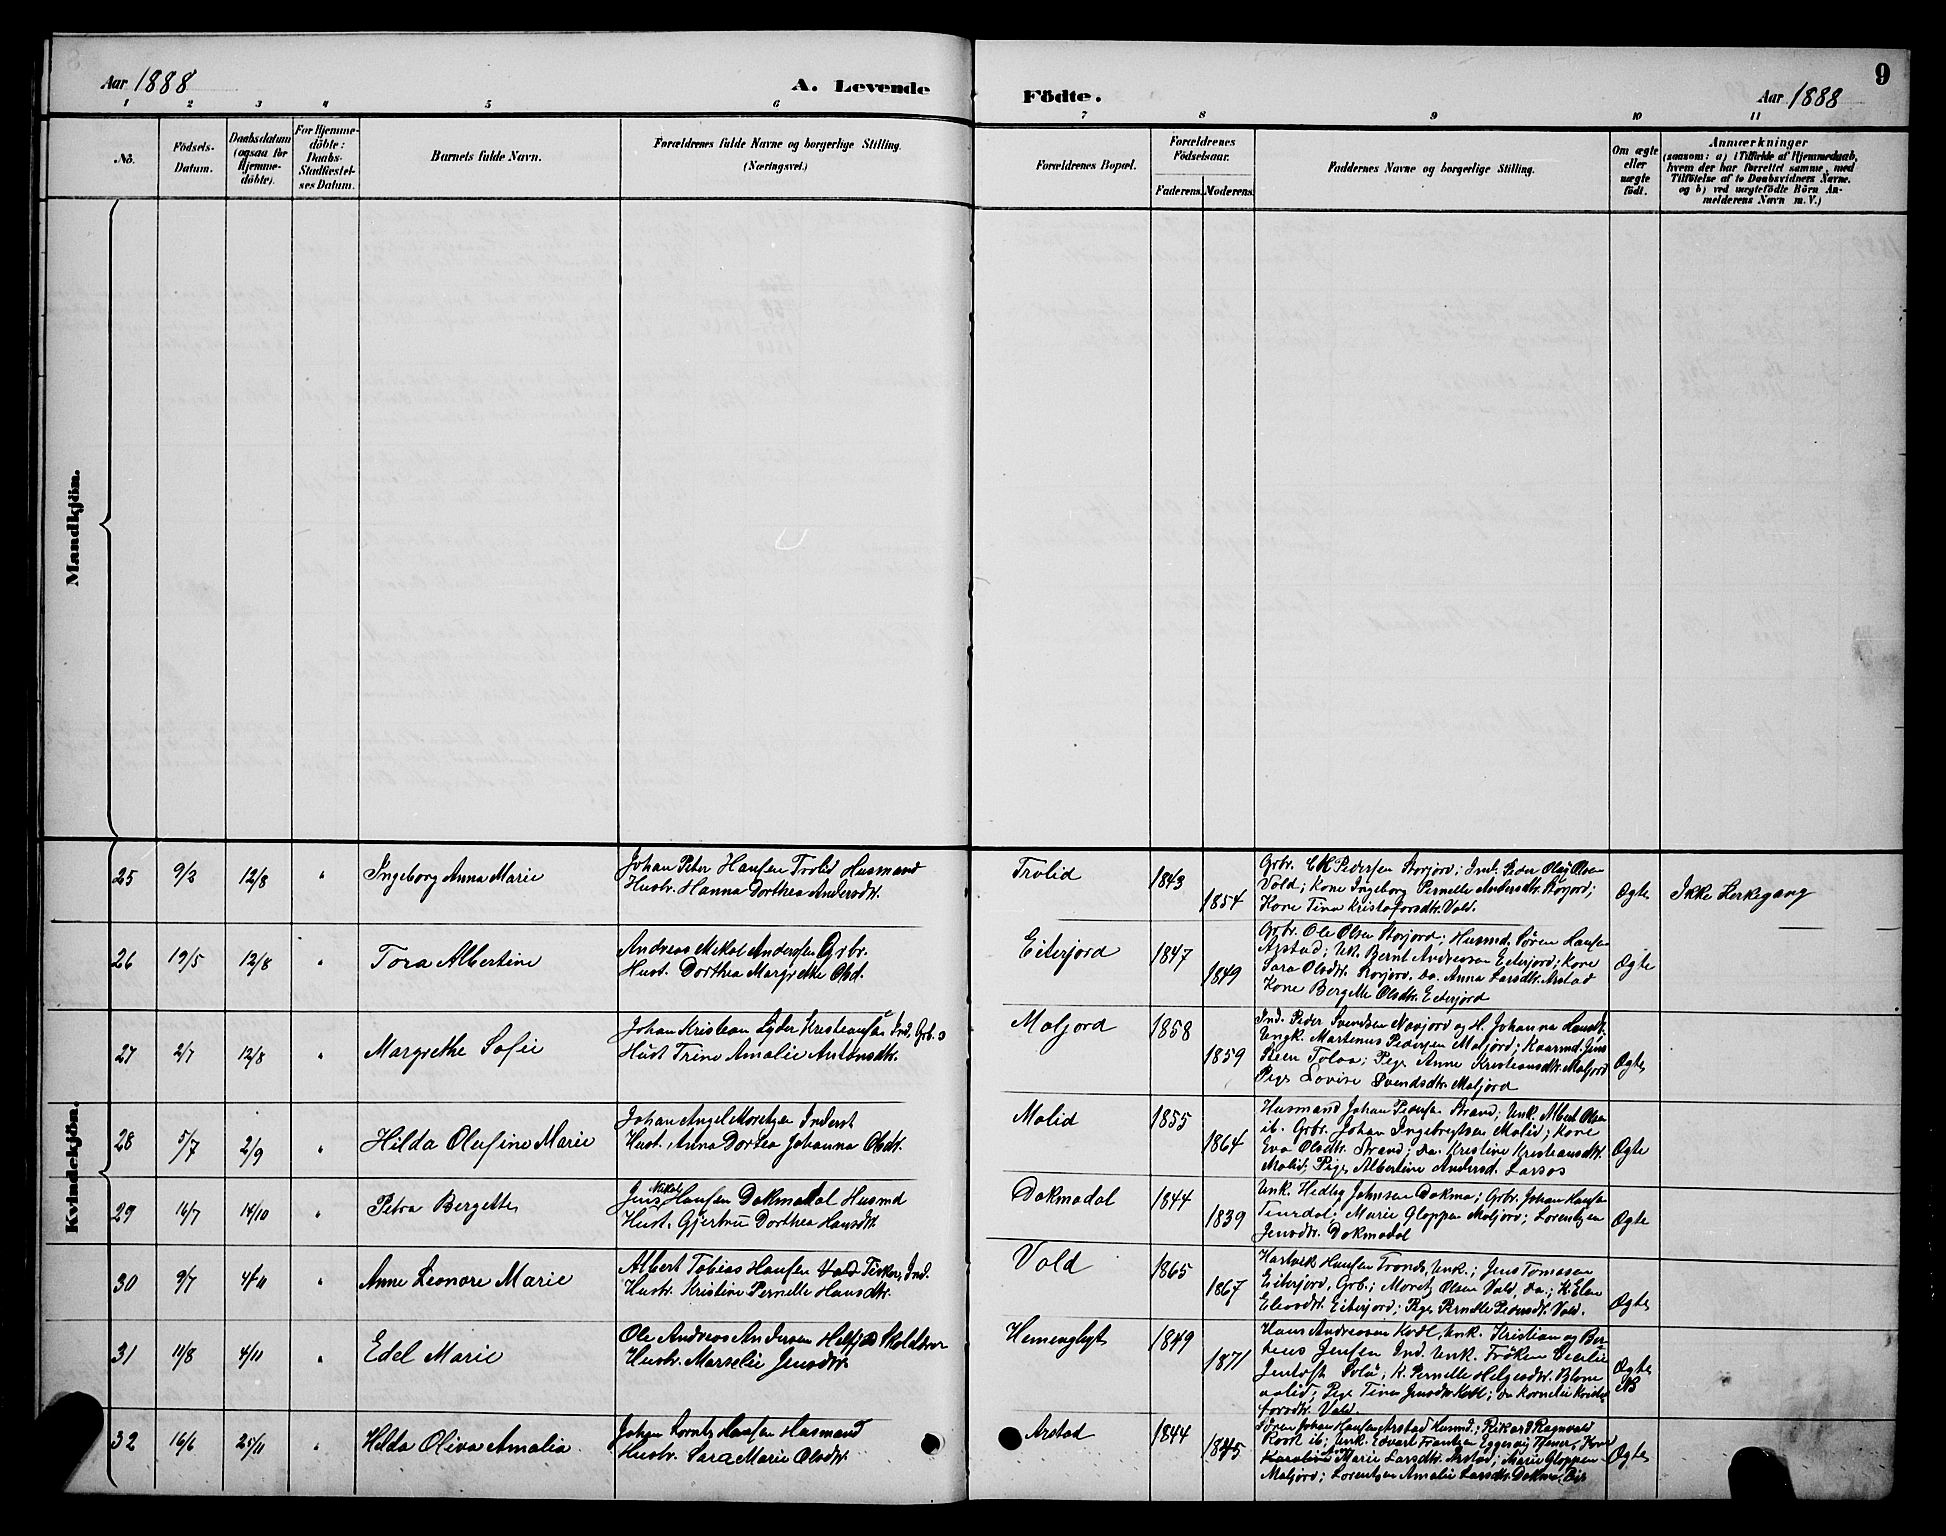 Aar 1888
A. Levende
Födte.
Aar 1888
9
1 2 3 4 5 6 7 8 9 10 11
No.
Födsels-
Datum.
Daabsdatum
(ogsaa for
Hjemme-
döbte).
For Hjemme-
döbte:
Daabs-
Stadfæstel-
ses Datum.
Barnets fulde Navn.
Forældrenes fulde Navne og borgerlige Stilling.
(Næringsvei.)
Forældrenes Bopæl.
Forældrenes
Födselsaar.
Faderens. Moderens.
Faddernes Navne og borgerlige Stilling.
Om ægte
eller
uægte
födt.
Anmærkninger
(saasom: a) i Tilfælde af Hjemmedaab,
hvem der har forrettet samme, med
Tilföielse af to Daabsvidners Navne.
og b) ved uægtefödte Börn An-
melderens Navn m. V.)
Mandkjön.
Kvindekjön.
25 9/2 12/8 " Ingeborg Anna Marie
Johan Peter Hansen Trolid Husmand
Hustr. Hanna Dorthea Andersdtr.
Trolid 1843 1854
Grbr. Pedersen Storjord; Ind. Peder Olaj Olsen
Vold; Kone Ingeborg Pernelle Andersdtr. Storjord;
Kone Tina Kristofersdtr. Vold.
Ægte Ikke Kirkegang
26 19/5 12/8 " Tora Albertine
Andreas Mikal Andersen Grbr.
Hust. Dorthea Margrethe Olsd.
Eiterjord 1847 1849
Grbr. Ole Olsen Storjord; Husmd. Sören Hansen
Arstad; Uk. Bernt Andreasen Eiterjord; Kone
Sara Olsdtr. Storjord. Do. Anna Larsdtr. Arstad
Kone Bergette Olsdtr. Eiterjord
Ægte
27 2/7 12/8 " Margrethe Sofie
Johan Kristian Lyder Kristiansen Ind. Grb.
Hust Trine Amalie Antonsdtr.
Moljord 1858 1859
Ind. Peder Svendsen Moljord og H. Johanna Hansdt.
Ungk. Martenus Pedersen Moljord; Kaarmd. Jens
Steen Tolaa; Pige Anne Kristiansdtr. Moljord
Pige Lovise Svendsdtr. Moljord
Ægte
28 5/7 2/9 " Hilda Olufine Marie
Johan Angel Moritzen Inderst
Hust. Anna Dortea Johanna Olsdtr.
Molid 1855 1864
Husmand Johan Pedersen Strand; Unk. Albert Olsen
ib. Grbr. Johan Ingebregtsen Molid; Kone
Eva Olsdtr. Strand; Do. Kristine Kristiansdtr.
Molid; Pige Albertine Andersd. Larsos
Ægte
29 14/7 14/10 " Petra Bergette
Jens Nikol Hansen Dokmodal Husmd
Hust. Gjertru Dorthea Hansdtr
Dokmodal 1844 1839
Unk. Hedley Johnsen Dokmo; Grbr. Johan Hansen
Marie Gloppen Moljord; Lorentzen
Jensdtr. Dokmodal
Ægte
30 9/7 4/11 " Anne Leonore Marie
Albert Tobias Hansen Vold Fisker, Ind.
Hustr. Kristine Pernelle Hansdtr.
Vold 1865 1867
Hartvik Hansen Unk.; Jens Tomasen
Eiterjord, Grb.; Moretz Olsen Vold, Do.; K. Elen
Eleasdtr. Eiterjord; Pige Pernelle Pedersdtr. Vold.
Ægte
31 11/8 4/11 " Edel Marie
Ole Andreas Andersen
Hustr. Marselie Jensdtr.
Hemenglyt 1849 1871
Hans Andreasen Unk. Kristian og
Jensen Ind. Unk. Fröken Cecilie
Jentoft K. Pernelle Helgesdtr.
Pige Tina Jensdtr. Do. Kornelie
Vold.
Ægte
NB
32 16/6 25/11 " Hilda Oliva Amalia
Johan Hansen Husmand
Hustr. Sara Marie Olsdtr.
Arstad 1844 1845
Sören Johan Hansen Arstad Husmd.; Rikard Ragnvald
ib; Unk. Edvart Frantsen Kone
Marie Larsdtr. Arstad; Marie Gloppen
Moljord; Lorentzen Amalie Larsdtr. Dokmo
Ægte